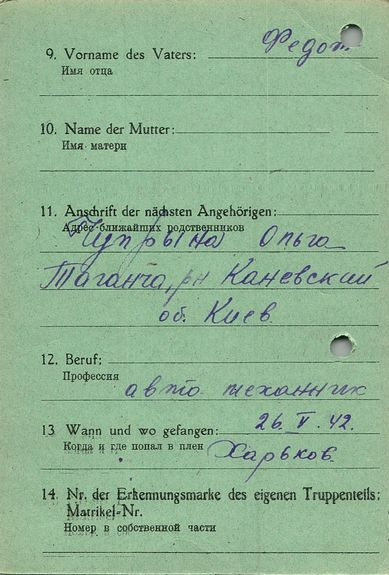 9. Vorname des Vaters: Федот
Имя отца
10. Name der Mutter:
Имя матери
11. Anschrift der nächsten Angehörigen:
Адрес ближайших родственников
Чупрына Ольга
Таганча, рн Каневский
об. Киев
12. Beruf:
Профессия
авто механник
13 Wann und wo gefangen: 26. V. 42.
Когда и где попал в плен Харьков.
14. Nr. der Erkennungsmarke des eigenen Truppenteils:
Matrikel-Nr.
Номер в собственной части